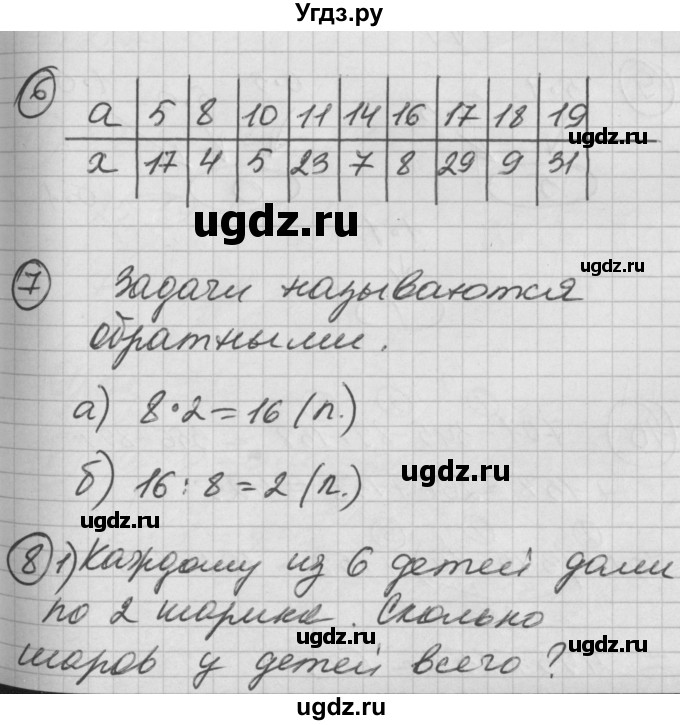 Угдз.ру
6
a 5 8 10 11 14 16 17 18 19
x 17 4 5 23 7 8 29 9 31
ugdz.ru
ugdz.ru
7 Задачи называются
ugdz.ru
обратными.
а) 8·2=16 (п.)
б) 16:8=2 (п.)
ugdz.ru
ugdz.ru
8 1) Каждому из 6 детей дали
по 2 шарика. Сколько
ugdz.ru
шаров у детей всего?
ugdz.ru
ugdz.ru